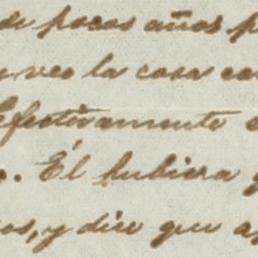 de pocos años p
y veo la cosa con
Efectivamente e
o. Él hubiera q
os, y dice que a